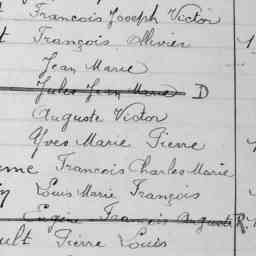 François Joseph Victor
t François Olivier
Jean Marie
Jules Jean Marie D
Auguste Victor
Yves Marie Pierre
me François Charles Marie
Louis Marie François
Eugène François Auguste R.
ult Pierre Louis